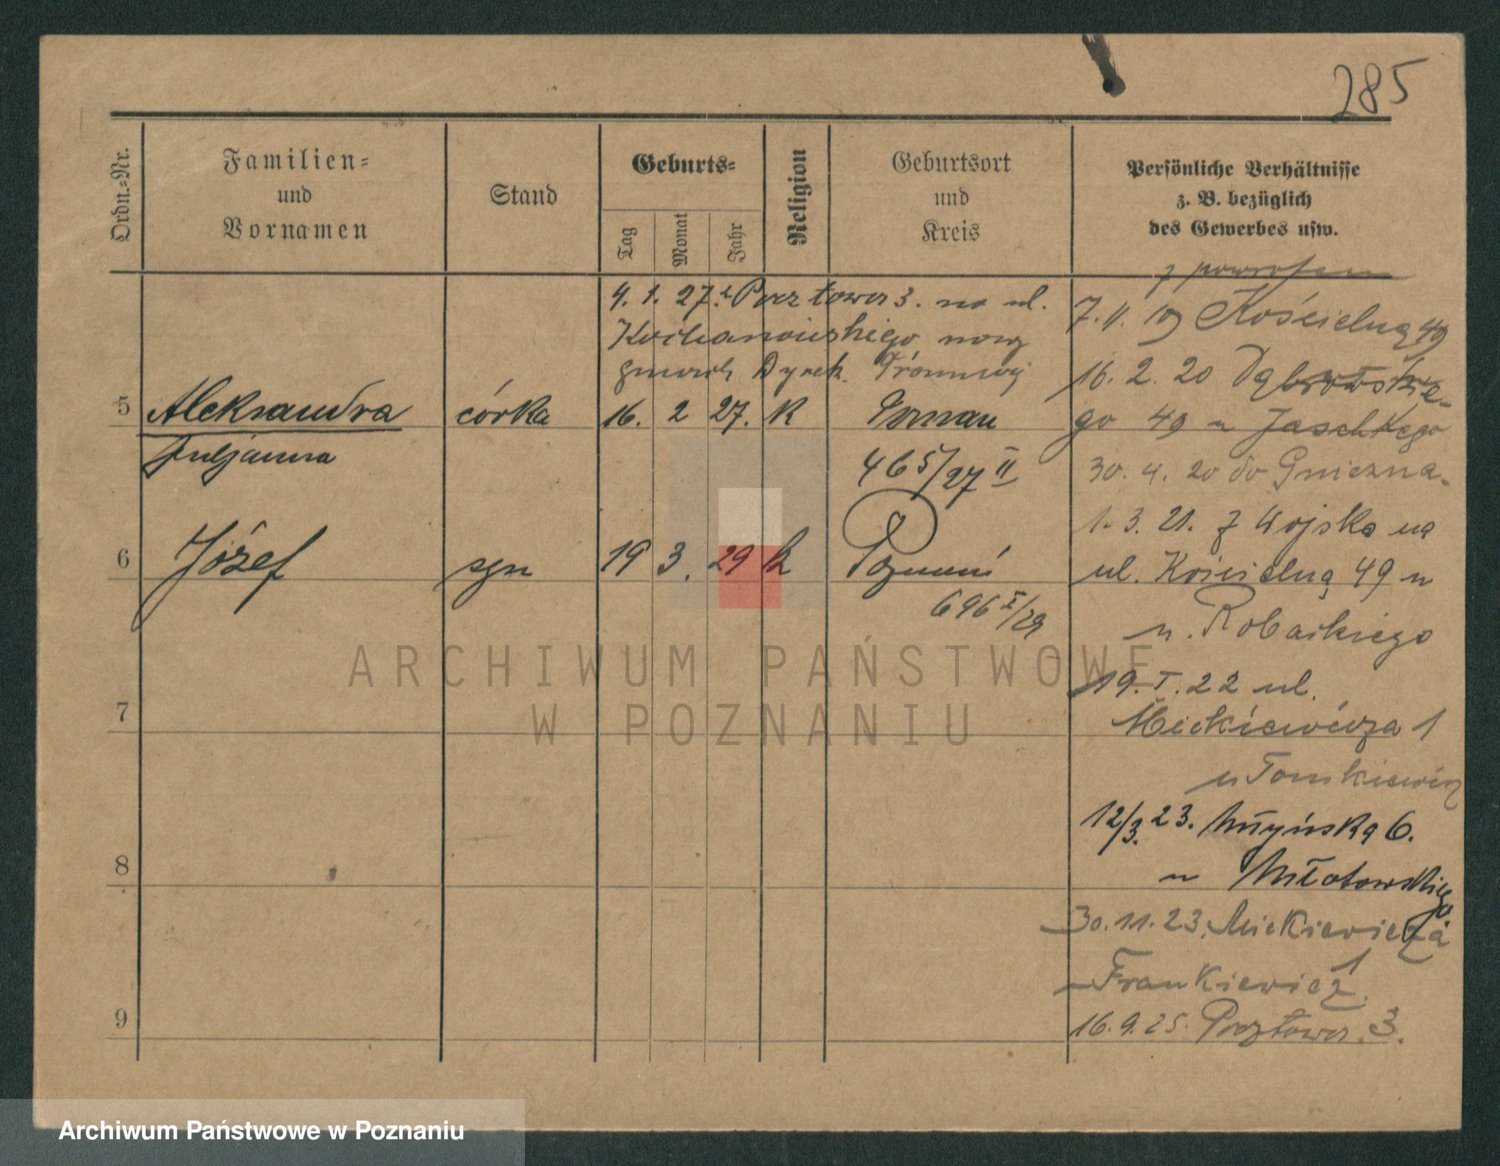 285
Ordn.=Nr.
Familien=
und
Vornamen
Stand
Geburts=
Tag
Monat
Jahr
Religion
Geburtsort
und
Kreis
Persönliche Verhältnisse
z. B. bezüglich
des Gewerbes usw.
z powrotem
4. 1. 27. z Pocztowa 3. na ul.
Kochanowskiego nowy
gmach Dyrek.
5 Aleksandra córka 16. 2 27. k Poznań
Juljanna
465/27 II
6 Józef syn 19 3. 29 k Poznań
696 I/29
7
8
9
7. II. 19 Kościelną 49
16. 2. 20 Dąbrowskie-
go 49 u Jaschkego
30. 4. 20 do Gniezna.
1. 3. 21. z Wojska na
ul. Kościelną 49 u
u. Robackiego
19. I. 22 ul.
Mickiewicza 1
u Tomkiewicz
12/3. 23. 6.
u
30. 11. 23. Mickiewicza
1
Frankiewicz.
16. 9. 25. Pocztowa 3.
ARCHIWUM PAŃSTWOWE
W POZNANIU
Archiwum Państwowe w Poznaniu